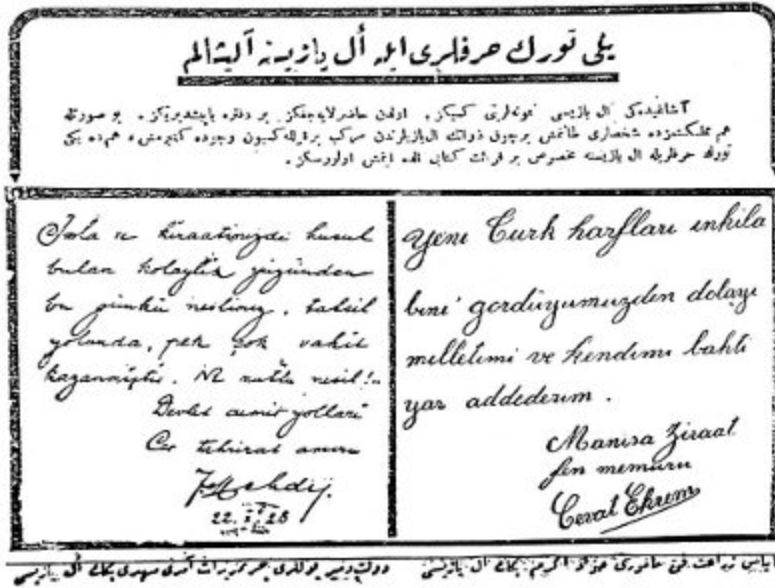 یكی تورك حرفلری ایله أل یازیسنه آلیشالم
آشاغیده‌كی أل یازیسی نمونه‌لرینی كسیكز. اولدن حاضرلایه‌جغكز بر دفتره یاپیشدیریكز. بو صورتله
هم مملكتمزده طانمش برچوق ذواتك ال یازیلرندن مركب بر قوللكسیون وجوده كتیرمش، هم ده یكی
تورك حرفلریله ال یازیسنه مخصوص بر قرائت كتابی الده ایتمش اولورسكز.
İmla ve kıraatimizde husul
bulan kolaylık yüzünden
bu günkü neslimiz, tahsil
yolunda, pek çok vakit
kazanmıştır. Ne mutlu nesil!..
Devlet demir yolları
Cer tahrirat amiri
Mehdij.
22. X. 28
Yeni Turk harfları inkila
bıni gorduyumuzden dolayı
milletimi ve kendimi bahtı
yar addederim.
Manisa Ziraat
fen memuru
Cevat Ekrem
زراعت فن مأموری جواد اكرم بكك أل یازیسی
دولت دمیر یوللری جر تحریرات آمری مهدی بكك أل یازیسی